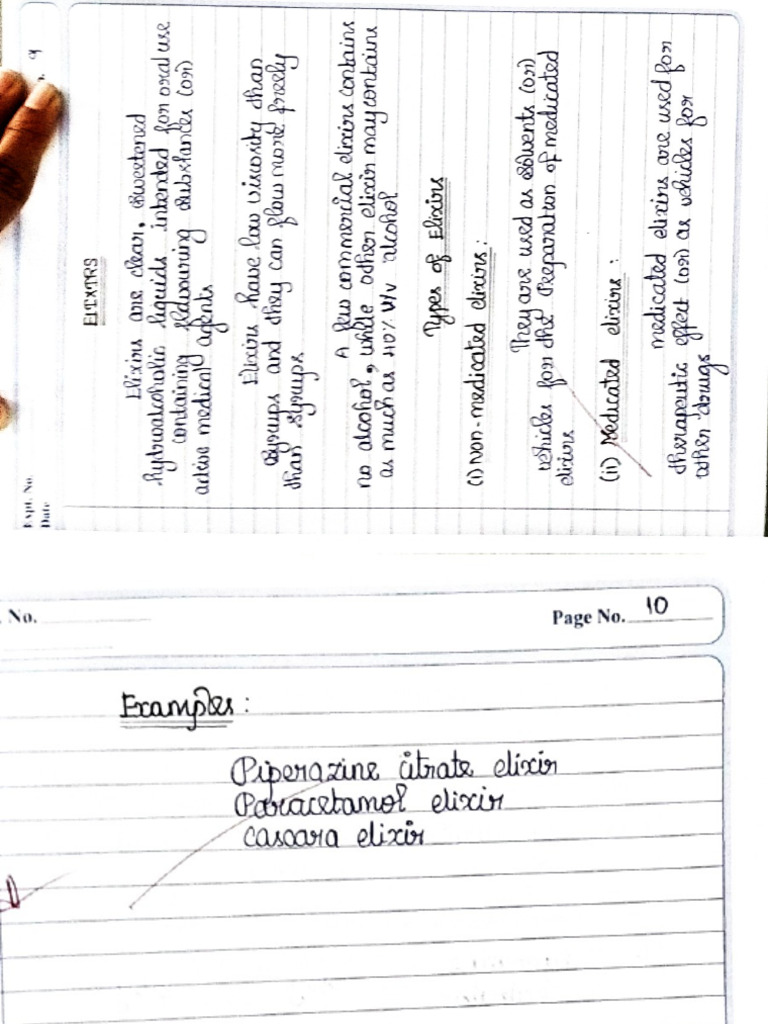 Expt. No.
Date
9
ELIXIRS
Elixirs are clear, sweetened
hydroalcoholic liquids intended for oral use
containing flavouring substances (or)
active medical agents
Elixirs have low viscosity than
syrups and they can flow more freely
than syrups
A few commercial elixirs contains
no alcohol, while other elixir may contains
as much as 40% v/v alcohol
Types of Elixirs
(i) Non-medicated elixirs:
They are used as solvents (or)
vehicles for the Preparation of medicated
elixirs
(ii) Medicated elixirs:
medicated elixirs are used for
therapeutic effect (or) as vehicles for
other drugs
. No.
Page No. 10
Examples:
Piperazine citrate elixir
Paracetamol elixir
Cascara elixir